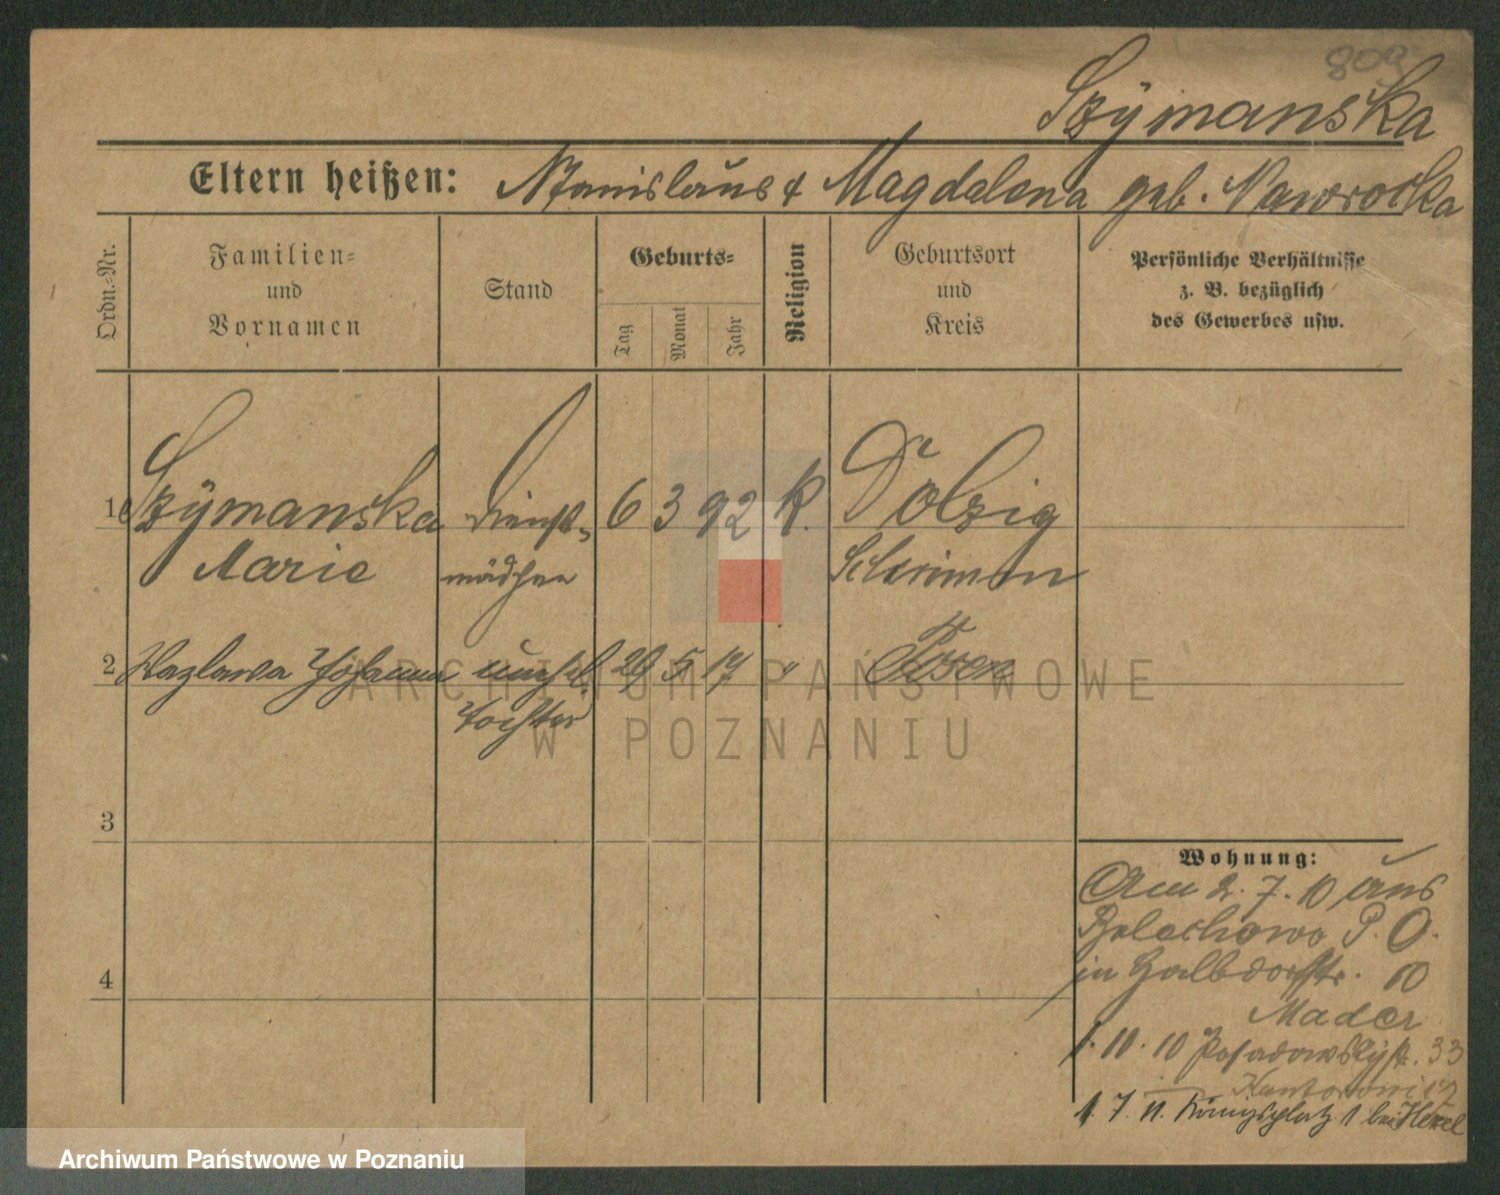 809
Szymanska
Eltern heißen: Stanislaus & Magdalena geb. Nawrocka
Ordn.-Nr.
Familien-
und
Vornamen
Stand
Geburts-
Tag
Monat
Jahr
Religion
Geburtsort
und
Kreis
Persönliche Verhältnisse
z. B. bezüglich
des Gewerbes usw.
1 Szymanska Dienst- 6 3 92 K. Dolzig
Marie mädchen Schrimm
2 Wazlawa Johanna unehel. 29 5 17 " Posen
Tochter
ARCHIWUM PAŃSTWOWE
W POZNANIU
3
4
Wohnung:
Am 2. 7. 10 aus
Bolechowo P. O.
in Halbdorfstr. 10
Mader
1. 10. 10 Posadowskystr. 33
Kantorowicz
1. 7. 11. Königsplatz 1 bei
Archiwum Państwowe w Poznaniu